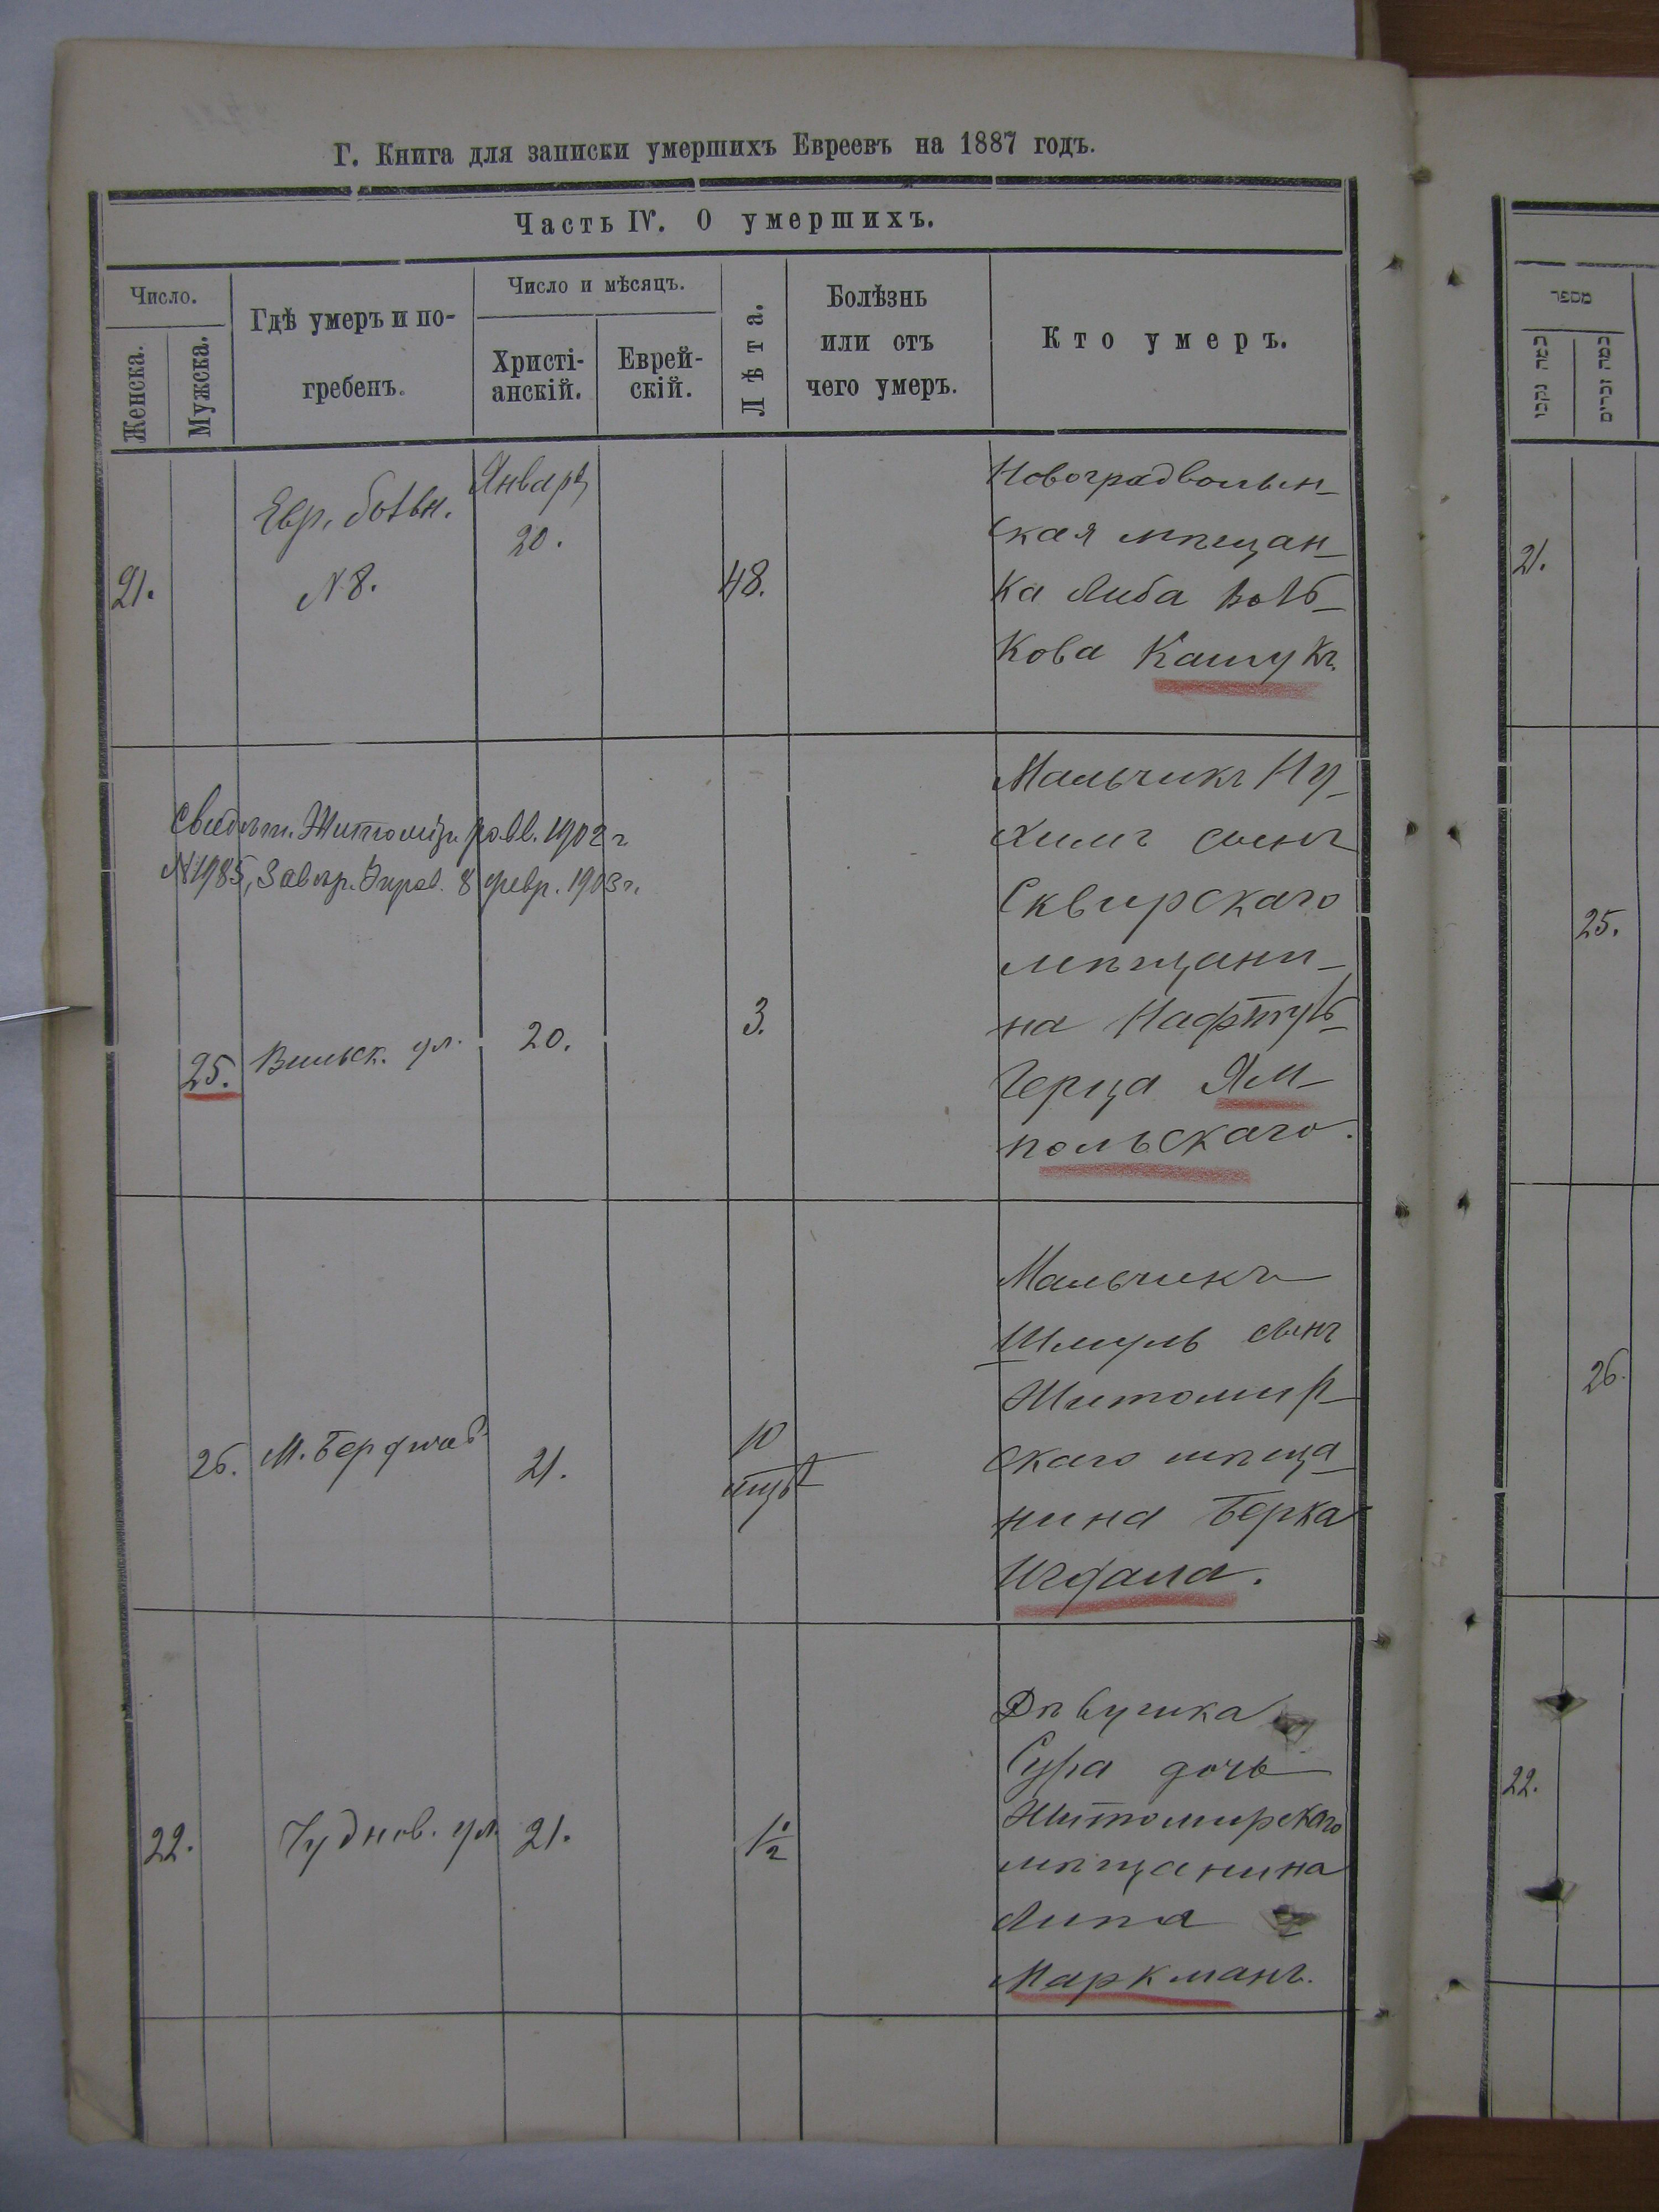 Г. Книга для записки умершихъ Евреевъ на 1887 годъ.
Часть IV. О умершихъ.
Число.
Женска.
Мужска.
Гдѣ умеръ и по-
гребенъ.
Число и мѣсяцъ.
Христі-
анскій.
Еврей-
скій.
Лѣта.
Болѣзнь
или отъ
чего умеръ.
Кто умеръ.
21.
Евр. больн.
N 8.
Январь
20.
48.
Новоградволын-
ская мѣщан-
ка Либа Воль-
кова Кашукъ.
Свидѣт. Житомір. равв. 1902 г.
N 1985, Завѣр. Управ. 8 февр. 1903 г.
25.
Вильск. ул.
20.
3.
Мальчикъ Ну-
химъ сынъ
Сквирскаго
мѣщани-
на Нафтуль
Герца Ям-
польскаго.
26.
21.
10
мцъ
Мальчикъ
Шмуль сынъ
Житомир-
скаго мѣща-
нина Берка
Игдала.
22.
Чуднов. ул.
21.
1 1/2
Дѣвушка
Сура дочь
Житомирскаго
мѣщанина
Липа
Маркманъ.
מספר
21.
25.
26.
22.